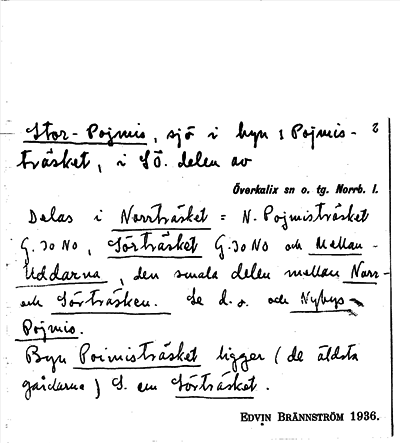 Stor-Pojmis, sjö i byn 1 Pojmis- 2
träsket, i SÖ. delen av
Överkalix sn o. tg. Norrb. l.
Delas i Norrträsket = N. Pojmisträsket
G. 30 NO, Sörträsket G. 30 NO och Mellan-
Uddarna, den smala delen mellan Norr-
och Sörträsken. Se d.o. och Nybys-
Pojmis.
Byn Poimisträsket ligger (de äldsta
gårdarna) S. om Sörträsket.
EDVIN BRÄNNSTRÖM 1936.